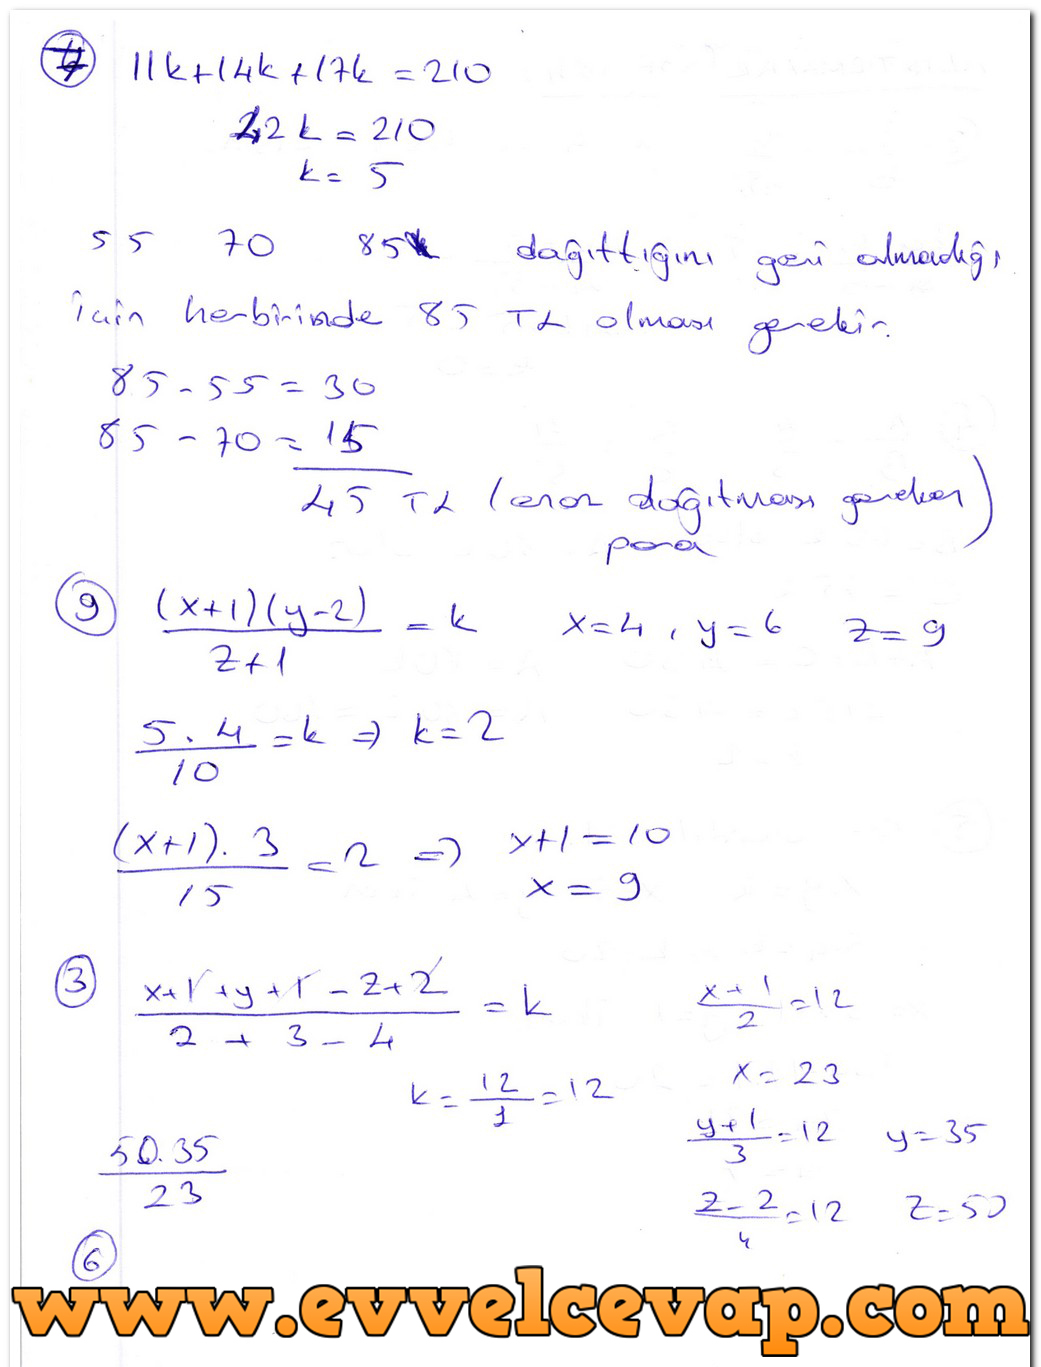 7 11k+14k+17k=210
42k=210
k=5
55 70 85 dağıttığını geri almadığı
için herbirinde 85 TL olması gerekir.
85-55=30
85-70=15
45 TL (onar dağıtması gereken)
para
9 (x+1)(y-2)/z+1 = k x=4, y=6 z=9
5.4/10 = k ⇒ k=2
(x+1).3/15 = 2 ⇒ x+1=10
x=9
3 x+1+y+1-z+2/2+3-4 = k x+1/2=12
k=12/1=12 x=23
y+1/3=12 y=35
50.35/23
z-2/4=12 z=50
6
www.evvelcevap.com